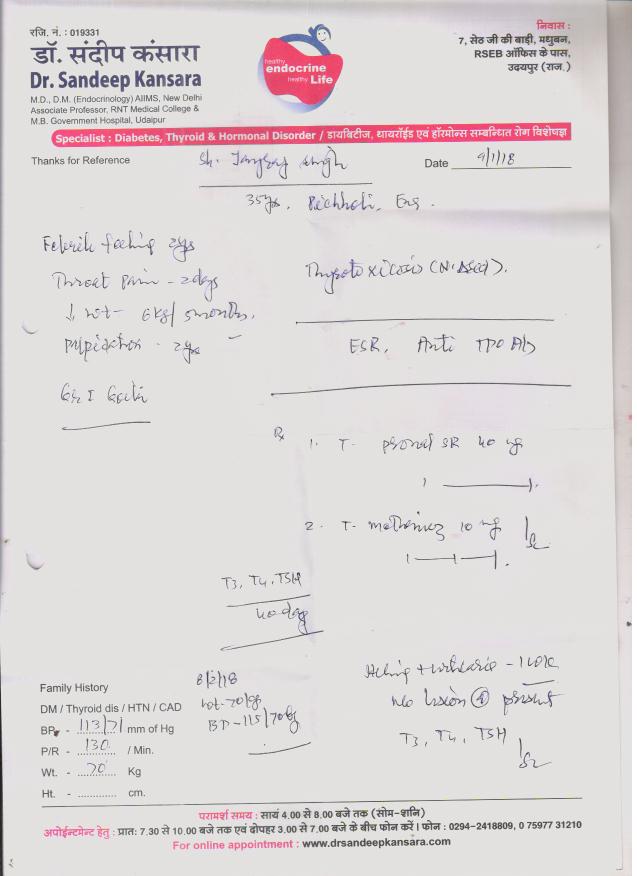 रजि. नं. : 019331
डॉ. संदीप कंसारा
Dr. Sandeep Kansara
M.D., D.M. (Endocrinology) AIIMS, New Delhi
Associate Professor, RNT Medical College &
M.B. Government Hospital, Udaipur
healthy
endocrine
healthy Life
निवास :
7, सेठ जी की बाड़ी, मधुबन,
RSEB ऑफिस के पास,
उदयपुर (राज.)
Specialist : Diabetes, Thyroid & Hormonal Disorder / डायबिटीज, थायरॉईड एवं हॉरमोन्स सम्बन्धित रोग विशेषज्ञ
Thanks for Reference
Sh. singh
Date 9/1/18
35yrs.
feeling 2yrs
Throat Pain - 2days
↓ wt - 6kg/5months.
- 2yrs
Gr I
Thyrotoxicosis
ESR, Anti TPO Ab
Rx
1. T- SR 40 mg
1
2. T- 10 mg
1
T3, T4, TSH
40 day
8/2/18
wt-70kg
BP-115/70
- 1 week
No lesion present
T3, T4, TSH
Family History
DM / Thyroid dis / HTN / CAD
BP - 113/71 mm of Hg
P/R - 130 / Min.
Wt. - 70 Kg
Ht. - ............ cm.
परामर्श समय : सायं 4.00 से 8.00 बजे तक (सोम-शनि)
अपोईन्टमेन्ट हेतु : प्रातः 7.30 से 10.00 बजे तक एवं दोपहर 3.00 से 7.00 बजे के बीच फोन करें । फोन : 0294-2418809, 0 75977 31210
For online appointment : www.drsandeepkansara.com